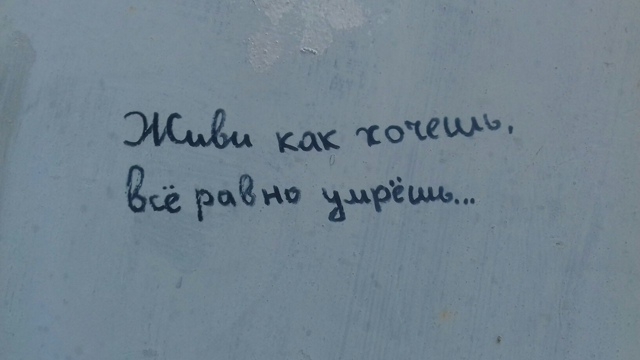 Живи как хочешь,
всё равно умрёшь...